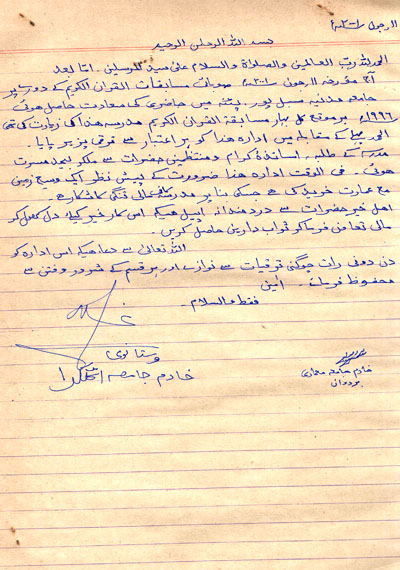 ۱۱؍جون ۲۰۰۱ء
بسم اللہ الرحمٰن الرحیم
الحمدللہ رب العالمین والصلوٰۃ والسلام علیٰ سید المرسلین۔ اما بعد
آج مؤرخہ ۱۱؍جون ۲۰۰۱ء صوبائی مسابقات القرآن الکریم کے دورے پر
جامعہ مدنیہ سبل پور۔ پٹنہ میں حاضری کی سعادت حاصل ہوئی
۱۹۹۶ء بر موقع کل بہار مسابقۃ القرآن الکریم مدرسہ ھذا کی زیارت کی تھی
الحمدللہ پہلے کے مقابلہ میں ادارہ ھذا کو ہر اعتبار سے ترقی پزیر پایا۔
مدرسہ کے طلبہ، اساتذۂ کرام و منتظمین حضرات سے ملکر بیحد مسرت
ہوئی۔ فی الوقت ادارہ ھذا ضرورت کے پیش نظر ایک وسیع زمین
مع عمارت خرید کی ہے جسکی بنا پر مدرسہ مالی تنگی کا شکار ہے۔
اہل خیر حضرات سے دردمندانہ اپیل ہیکہ اس کار خیر کیلئے دل کھول کر
مالی تعاون فرماکر ثواب دارین حاصل کریں۔
اللہ تعالیٰ سے دعا ہیکہ اس ادارہ کو
دن دونی رات چوگنی ترقیات سے نوازے اور ہر قسم کے شرور و فتن سے
محفوظ فرمائے۔ آمین
فقط والسلام
وستانوی
خادم جامعہ اکل کوا
خادم جامعہ